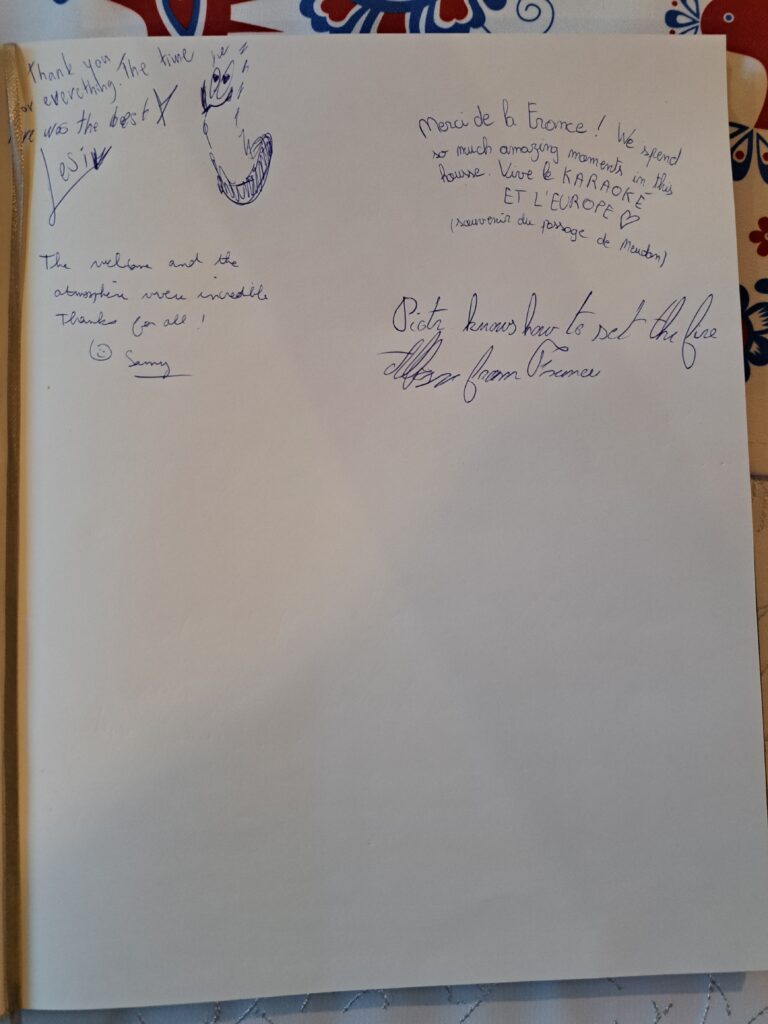 Thank you
or everething. The time
re was the best
The welcome and the
atmosphère were incredible
Thanks for all !
Merci de la France ! We spend
so much amazing moments in this
housse. Vive le KARAOKÉ
ET L'EUROPE
(souvenir du passage de Meudon)
Piotr knows how to set the fire
from France